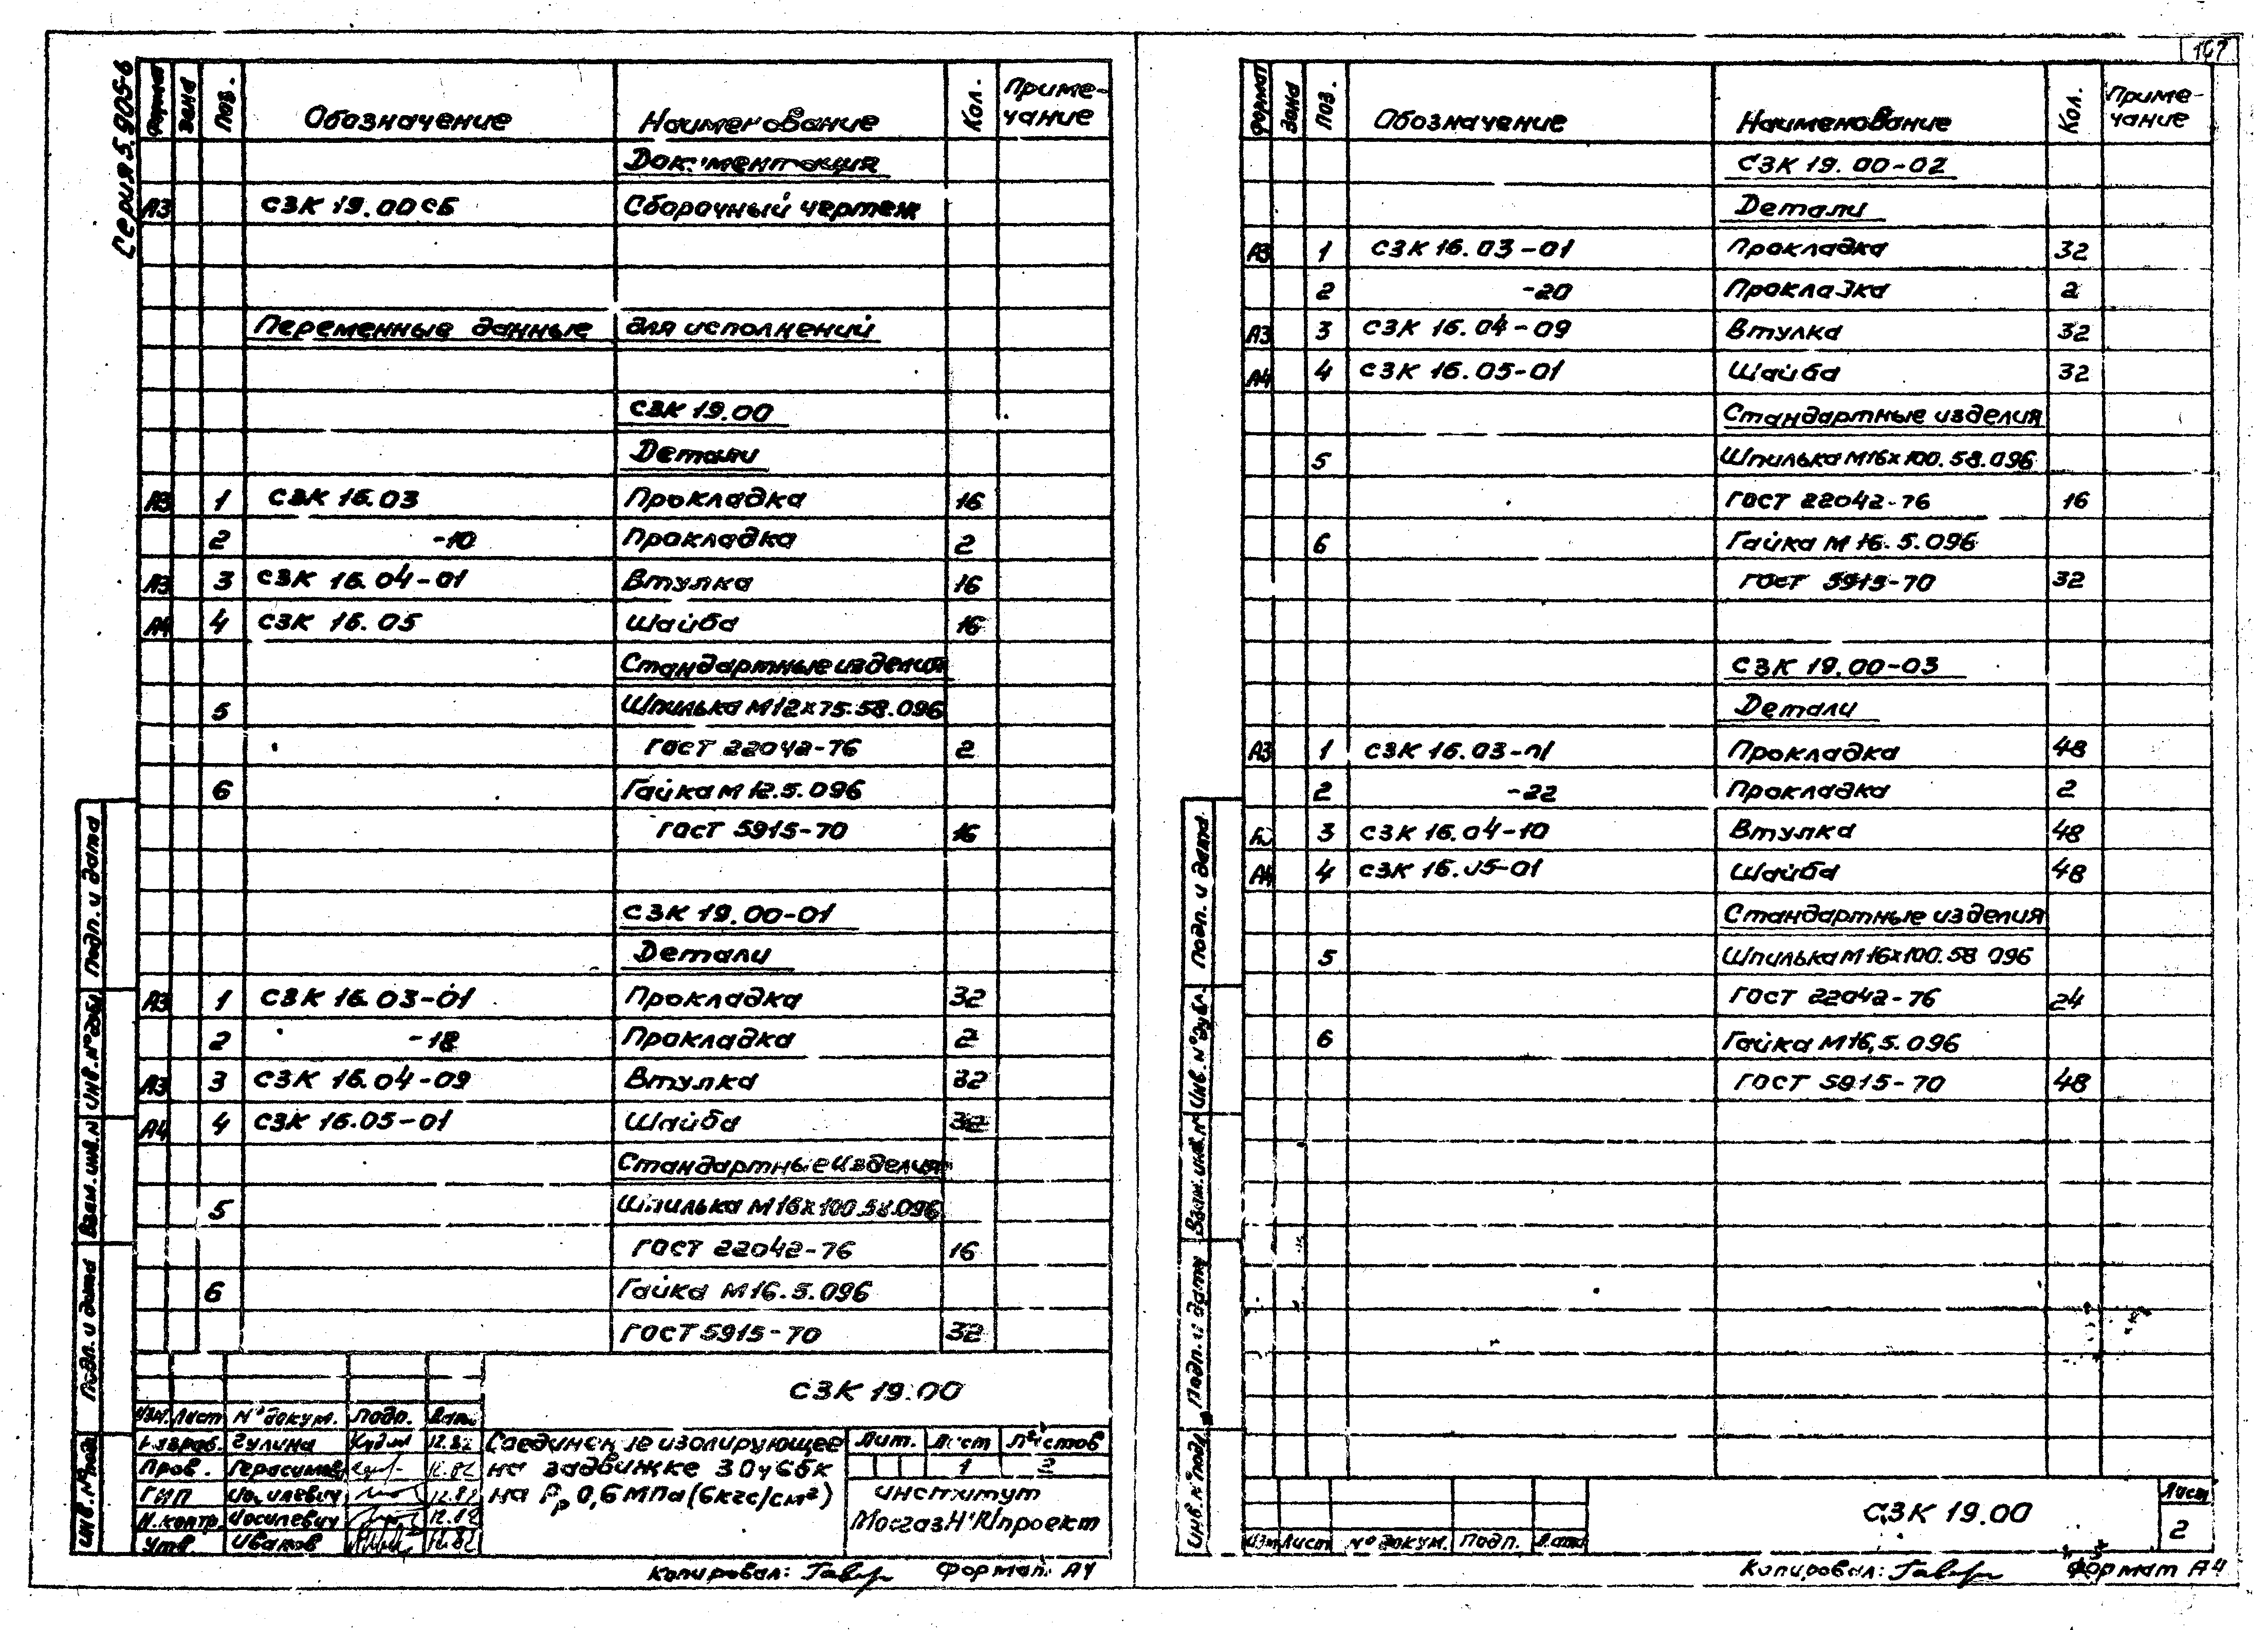 Серия 5.905-6
Формат Зона Поз. Обозначение Наименование Кол. Приме-
чание
Документация
А3 СЗК 19.00 СБ Сборочный чертеж
Переменные данные для исполнений
СЗК 19.00
Детали
А3 1 СЗК 16.03 Прокладка 16
2 -10 Прокладка 2
А3 3 СЗК 16.04-01 Втулка 16
А4 4 СЗК 16.05 Шайба 16
Стандартные изделия
5 Шпилька М12х75.58.096
ГОСТ 22042-76 2
6 Гайка М 12.5.096
ГОСТ 5915-70 16
СЗК 19.00-01
Детали
А3 1 СЗК 16.03-01 Прокладка 32
2 -18 Прокладка 2
А3 3 СЗК 16.04-09 Втулка 32
А4 4 СЗК 16.05-01 Шайба 32
Стандартные изделия
5 Шпилька М16х100.58.096
ГОСТ 22042-76 16
6 Гайка М16.5.096
ГОСТ 5915-70 32
Подп. и дата
Инв. № дубл.
Взам. инв. №
Подп. и дата
Инв. № подл.
СЗК 19.00
Изм. Лист № докум. Подп. Дата
Разраб. Гулина 12.82
Пров. 12.82
ГИП Иосилевич 12.82
Н. контр. Иосилевич 12.82
Утв. Иванов 12.82
Соединение изолирующее
на задвижке 30ч6бк
на Рр 0,6 МПа (6кгс/см²)
Лит. Лист Листов
1 2
институт
МосгазНИИпроект
Копировал: Формат А4
167
Формат Зона Поз. Обозначение Наименование Кол. Приме-
чание
СЗК 19.00-02
Детали
А3 1 СЗК 16.03-01 Прокладка 32
2 -20 Прокладка 2
А3 3 СЗК 16.04-09 Втулка 32
А4 4 СЗК 16.05-01 Шайба 32
Стандартные изделия
5 Шпилька М16х100.58.096
ГОСТ 22042-76 16
6 Гайка М 16.5.096
ГОСТ 5915-70 32
СЗК 19.00-03
Детали
А3 1 СЗК 16.03-01 Прокладка 48
2 -22 Прокладка 2
А3 3 СЗК 16.04-10 Втулка 48
А4 4 СЗК 16.05-01 Шайба 48
Стандартные изделия
5 Шпилька М16х100.58 096
ГОСТ 22042-76 24
6 Гайка М16,5.096
ГОСТ 5915-70 48
Подп. и дата.
Инв. № дубл.
Взам. инв. №
Подп. и дата
Инв. № подл.
Изм Лист № докум. Подп. Дата
СЗК 19.00
Лист
2
Копировал: Формат А4